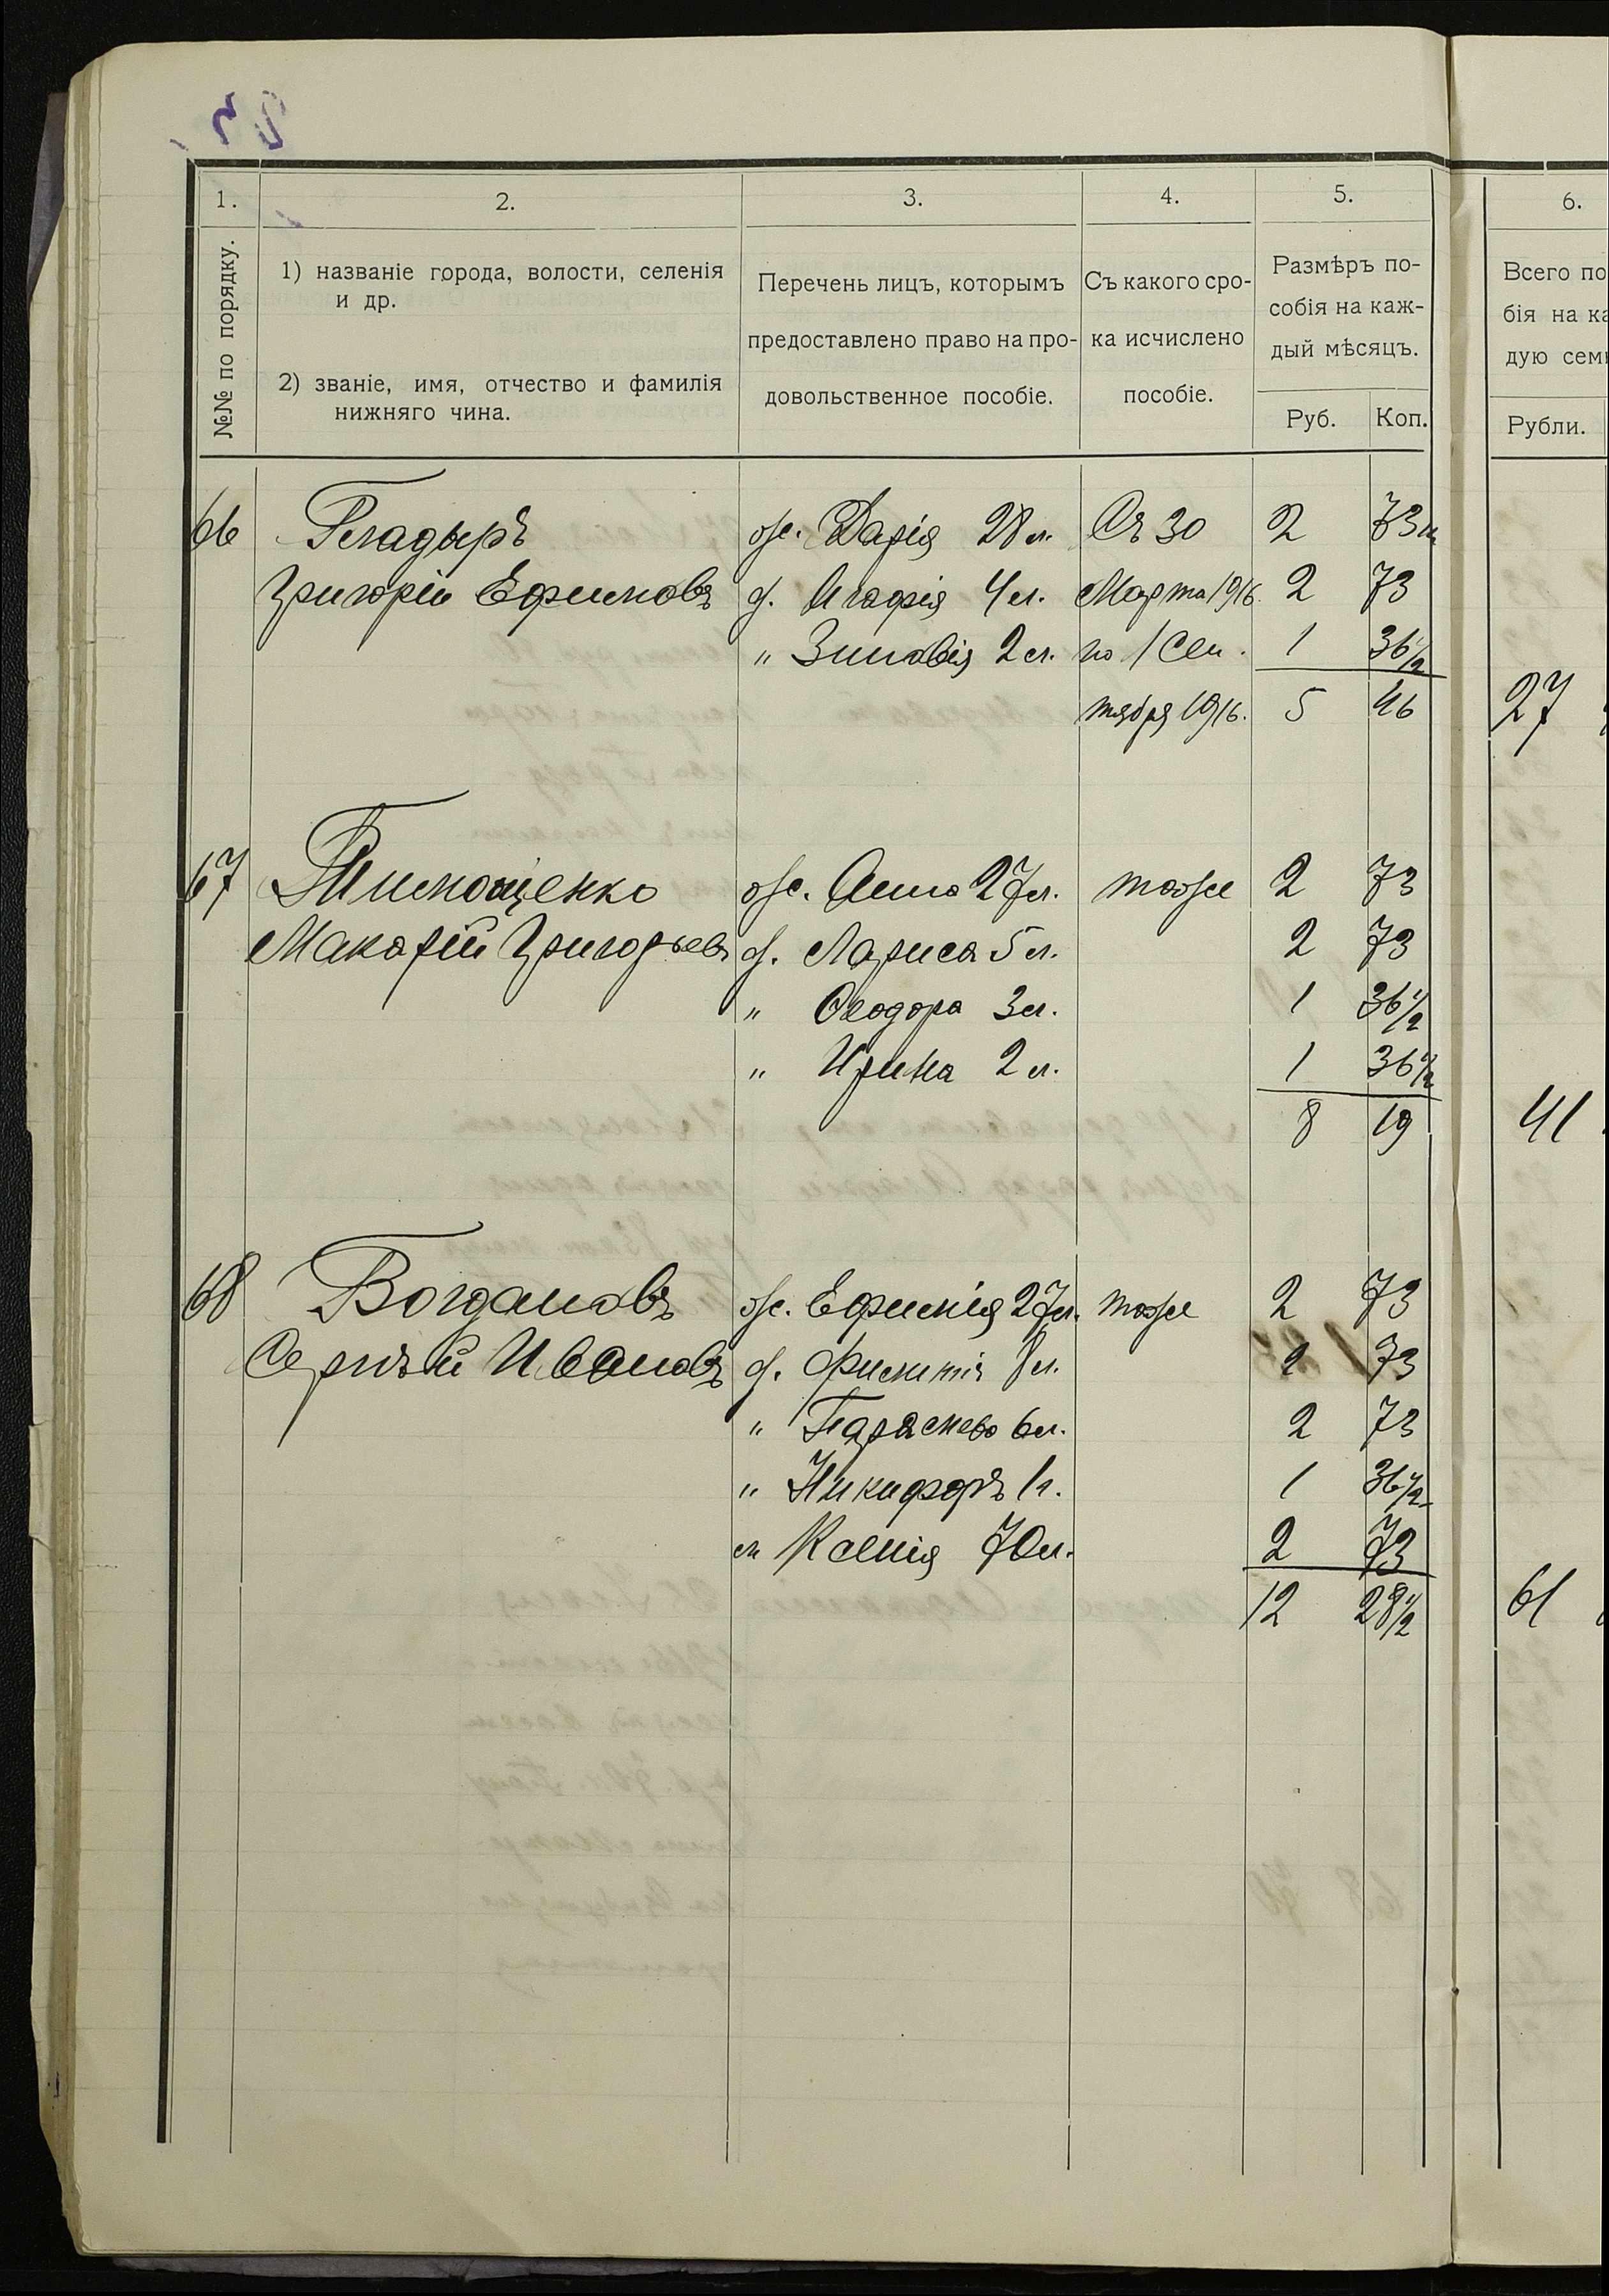 1.
2.
3.
4.
5.
6.
№№ по порядку.
1) названіе города, волости, селенія
и др.
2) званіе, имя, отчество и фамилія
нижняго чина.
Перечень лицъ, которымъ
предоставлено право на про-
довольственное пособіе.
Съ какого сро-
ка исчислено
пособіе.
Размѣръ по-
собія на каж-
дый мѣсяцъ.
Руб. Коп.
Всего по
бія на ка
дую сем
Рубли.
66 Гладырь ж. Дарія 28 л. Съ 30 2 73
Григорій Ефимовъ д. Агафія 4 л. Марта 1916. 2 73
" Зиновія 2 л. по 1 Сен. 1 36 1/2
тября 1916. 5 46 27
67 Тимощенко ж. Анна 27 л. тоже 2 73
Макарій Григорьевъ д. Лариса 5 л. 2 73
" Ѳеодора 3 л. 1 36 1/2
" Ирина 2 л. 1 36 1/2
8 19 41
68 Богдановъ ж. Ефимія 27 л. тоже 2 73
Сергѣй Ивановъ д. 8 л. 2 73
" Параскева 6 л. 2 73
" Никифоръ 1 г. 1 36 1/2
м Ксенія 70 л. 2 73
12 28 1/2 61